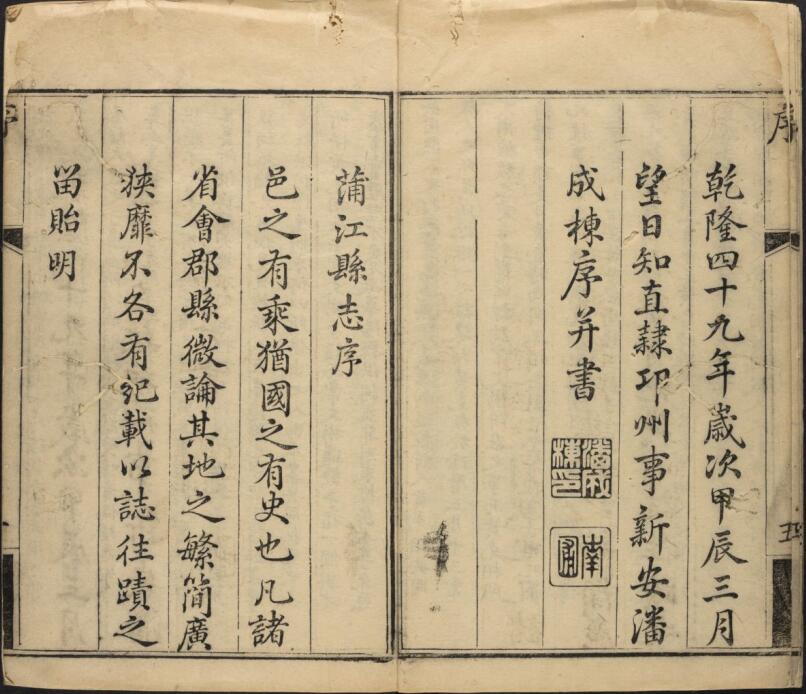 序
乾隆四十九年歲次甲辰三月
望日知直隸邛州事新安潘
成棟序并書
潘成棟印
五
蒲江縣志序
邑之有乘猶國之有史也凡諸
省會郡縣微論其地之繁簡廣
狹靡不各有紀載以誌往蹟之
留貽明